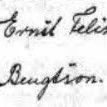 Ernst Felix
Bengtson.